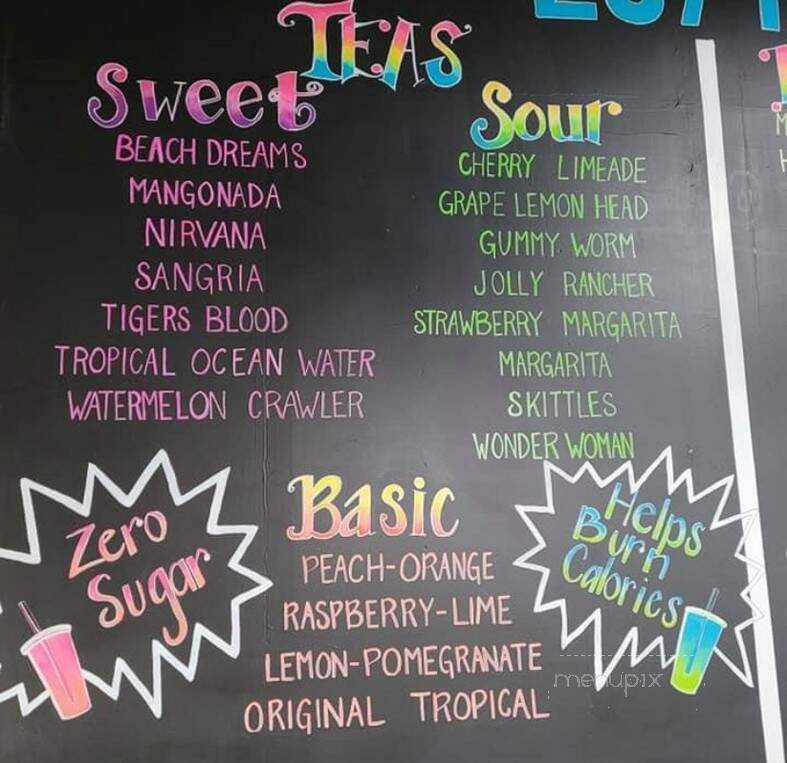 TEAS
Sweet
BEACH DREAMS
MANGONADA
NIRVANA
SANGRIA
TIGERS BLOOD
TROPICAL OCEAN WATER
WATERMELON CRAWLER
Sour
CHERRY LIMEADE
GRAPE LEMON HEAD
GUMMY WORM
JOLLY RANCHER
STRAWBERRY MARGARITA
MARGARITA
SKITTLES
WONDER WOMAN
Zero
Sugar
Basic
PEACH-ORANGE
RASPBERRY-LIME
LEMON-POMEGRANATE
ORIGINAL TROPICAL
Helps
Burn
Calories
menupix